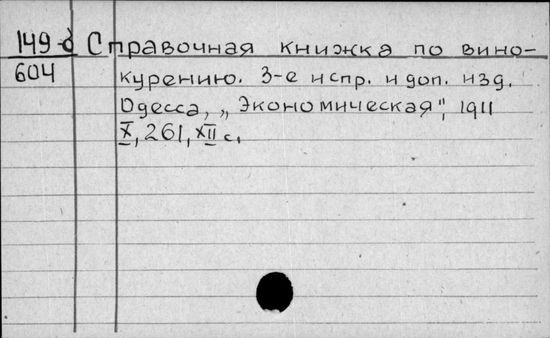 149-б Справочная книжка по вино-
604 курению. 3-е испр. и доп. изд.
Одесса, „Экономическая", 1911
X, 261, XII с.